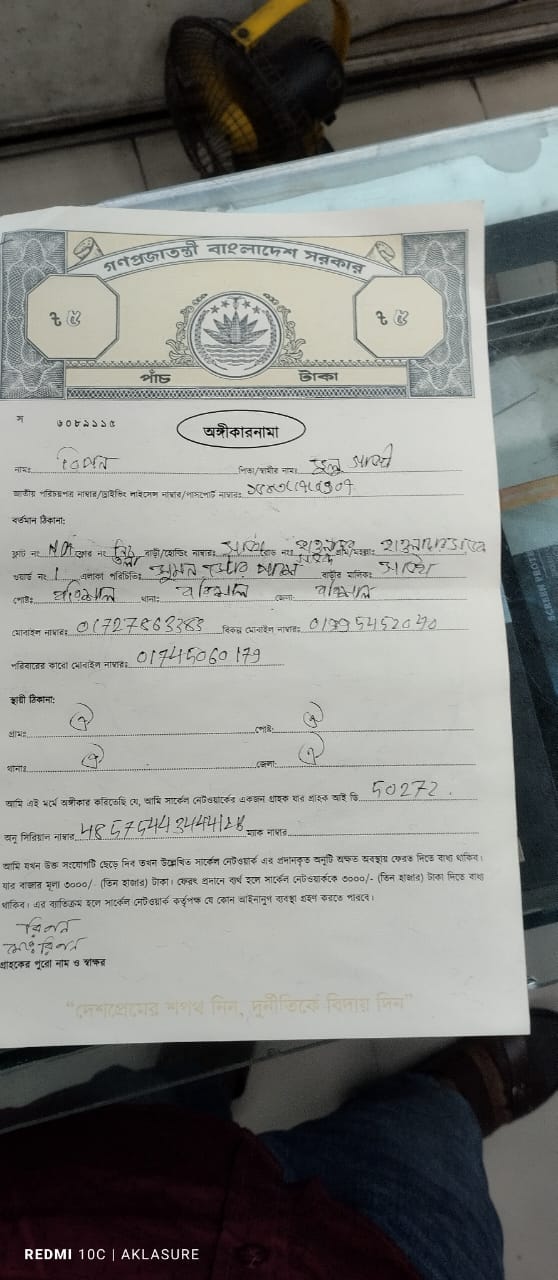 গণপ্রজাতন্ত্রী বাংলাদেশ সরকার
৳ ৫ ৳ ৫
পাঁচ টাকা
স ৬০৮৯১১৫
অঙ্গীকারনামা
নামঃ রিপন পিতা/স্বামীর নামঃ
জাতীয় পরিচয়পত্র নাম্বার/ড্রাইভিং লাইসেন্স নাম্বার/পাসপোর্ট নাম্বারঃ
বর্তমান ঠিকানা:
ফ্ল্যাট নং বাড়ী/হোল্ডিং নাম্বারঃ রোড নংঃ গ্রাম/মহল্লাঃ
ওয়ার্ড নংঃ 1 এলাকা পরিচিতিঃ বাড়ীর মালিকঃ
পোষ্টঃ বরিশাল থানাঃ বরিশাল জেলাঃ বরিশাল
মোবাইল নাম্বারঃ 01727863383 বিকল্প মোবাইল নাম্বারঃ 01995452040
পরিবারের কারো মোবাইল নাম্বারঃ 01745060179
স্থায়ী ঠিকানা:
গ্রামঃ পোষ্ট:
থানাঃ জেলা:
আমি এই মর্মে অঙ্গীকার করিতেছি যে, আমি সার্কেল নেটওয়ার্কের একজন গ্রাহক যার গ্রাহক আই ডি 50272.
অনু সিরিয়াল নাম্বার ম্যাক নাম্বার
আমি যখন উক্ত সংযোগটি ছেড়ে দিব তখন উল্লেখিত সার্কেল নেটওয়ার্ক এর প্রদানকৃত অনুটি অক্ষত অবস্থায় ফেরত দিতে বাধ্য থাকিব।
যার বাজার মূল্য ৩০০০/- (তিন হাজার) টাকা। ফেরৎ প্রদানে ব্যর্থ হলে সার্কেল নেটওয়ার্ককে ৩০০০/- (তিন হাজার) টাকা দিতে বাধ্য
থাকিব। এর ব্যতিক্রম হলে সার্কেল নেটওয়ার্ক কর্তৃপক্ষ যে কোন আইনানুগ ব্যবস্থা গ্রহণ করতে পারবে।
রিপন
মোঃ রিপন
গ্রাহকের পুরো নাম ও স্বাক্ষর
“দেশপ্রেমের শপথ নিন, দুর্নীতিকে বিদায় দিন”
REDMI 10C | AKLASURE